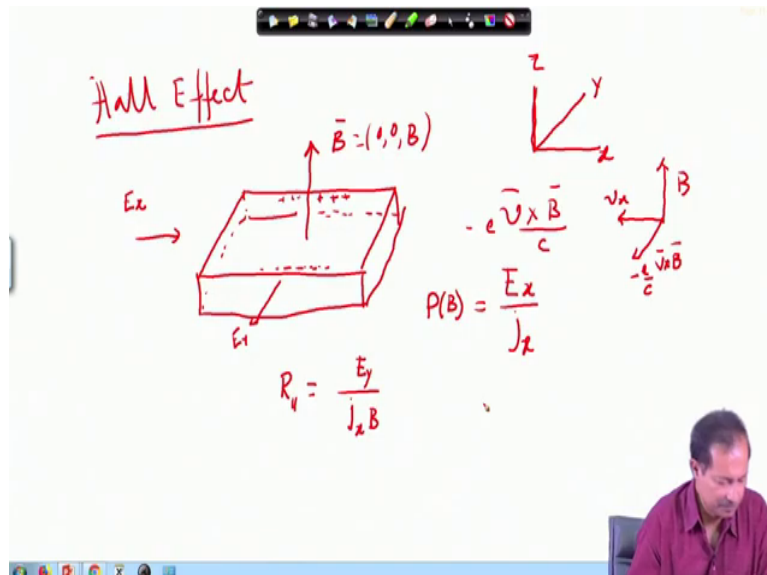 Hall Effect
B̄ = (0, 0, B)
z
y
x
Ex
+ + +
- - - - - -
Ey
- e v̄ × B̄ / c
B
vx
-e/c v̄×B̄
ρ(B) = Ex / jx
R_H = Ey / jx B